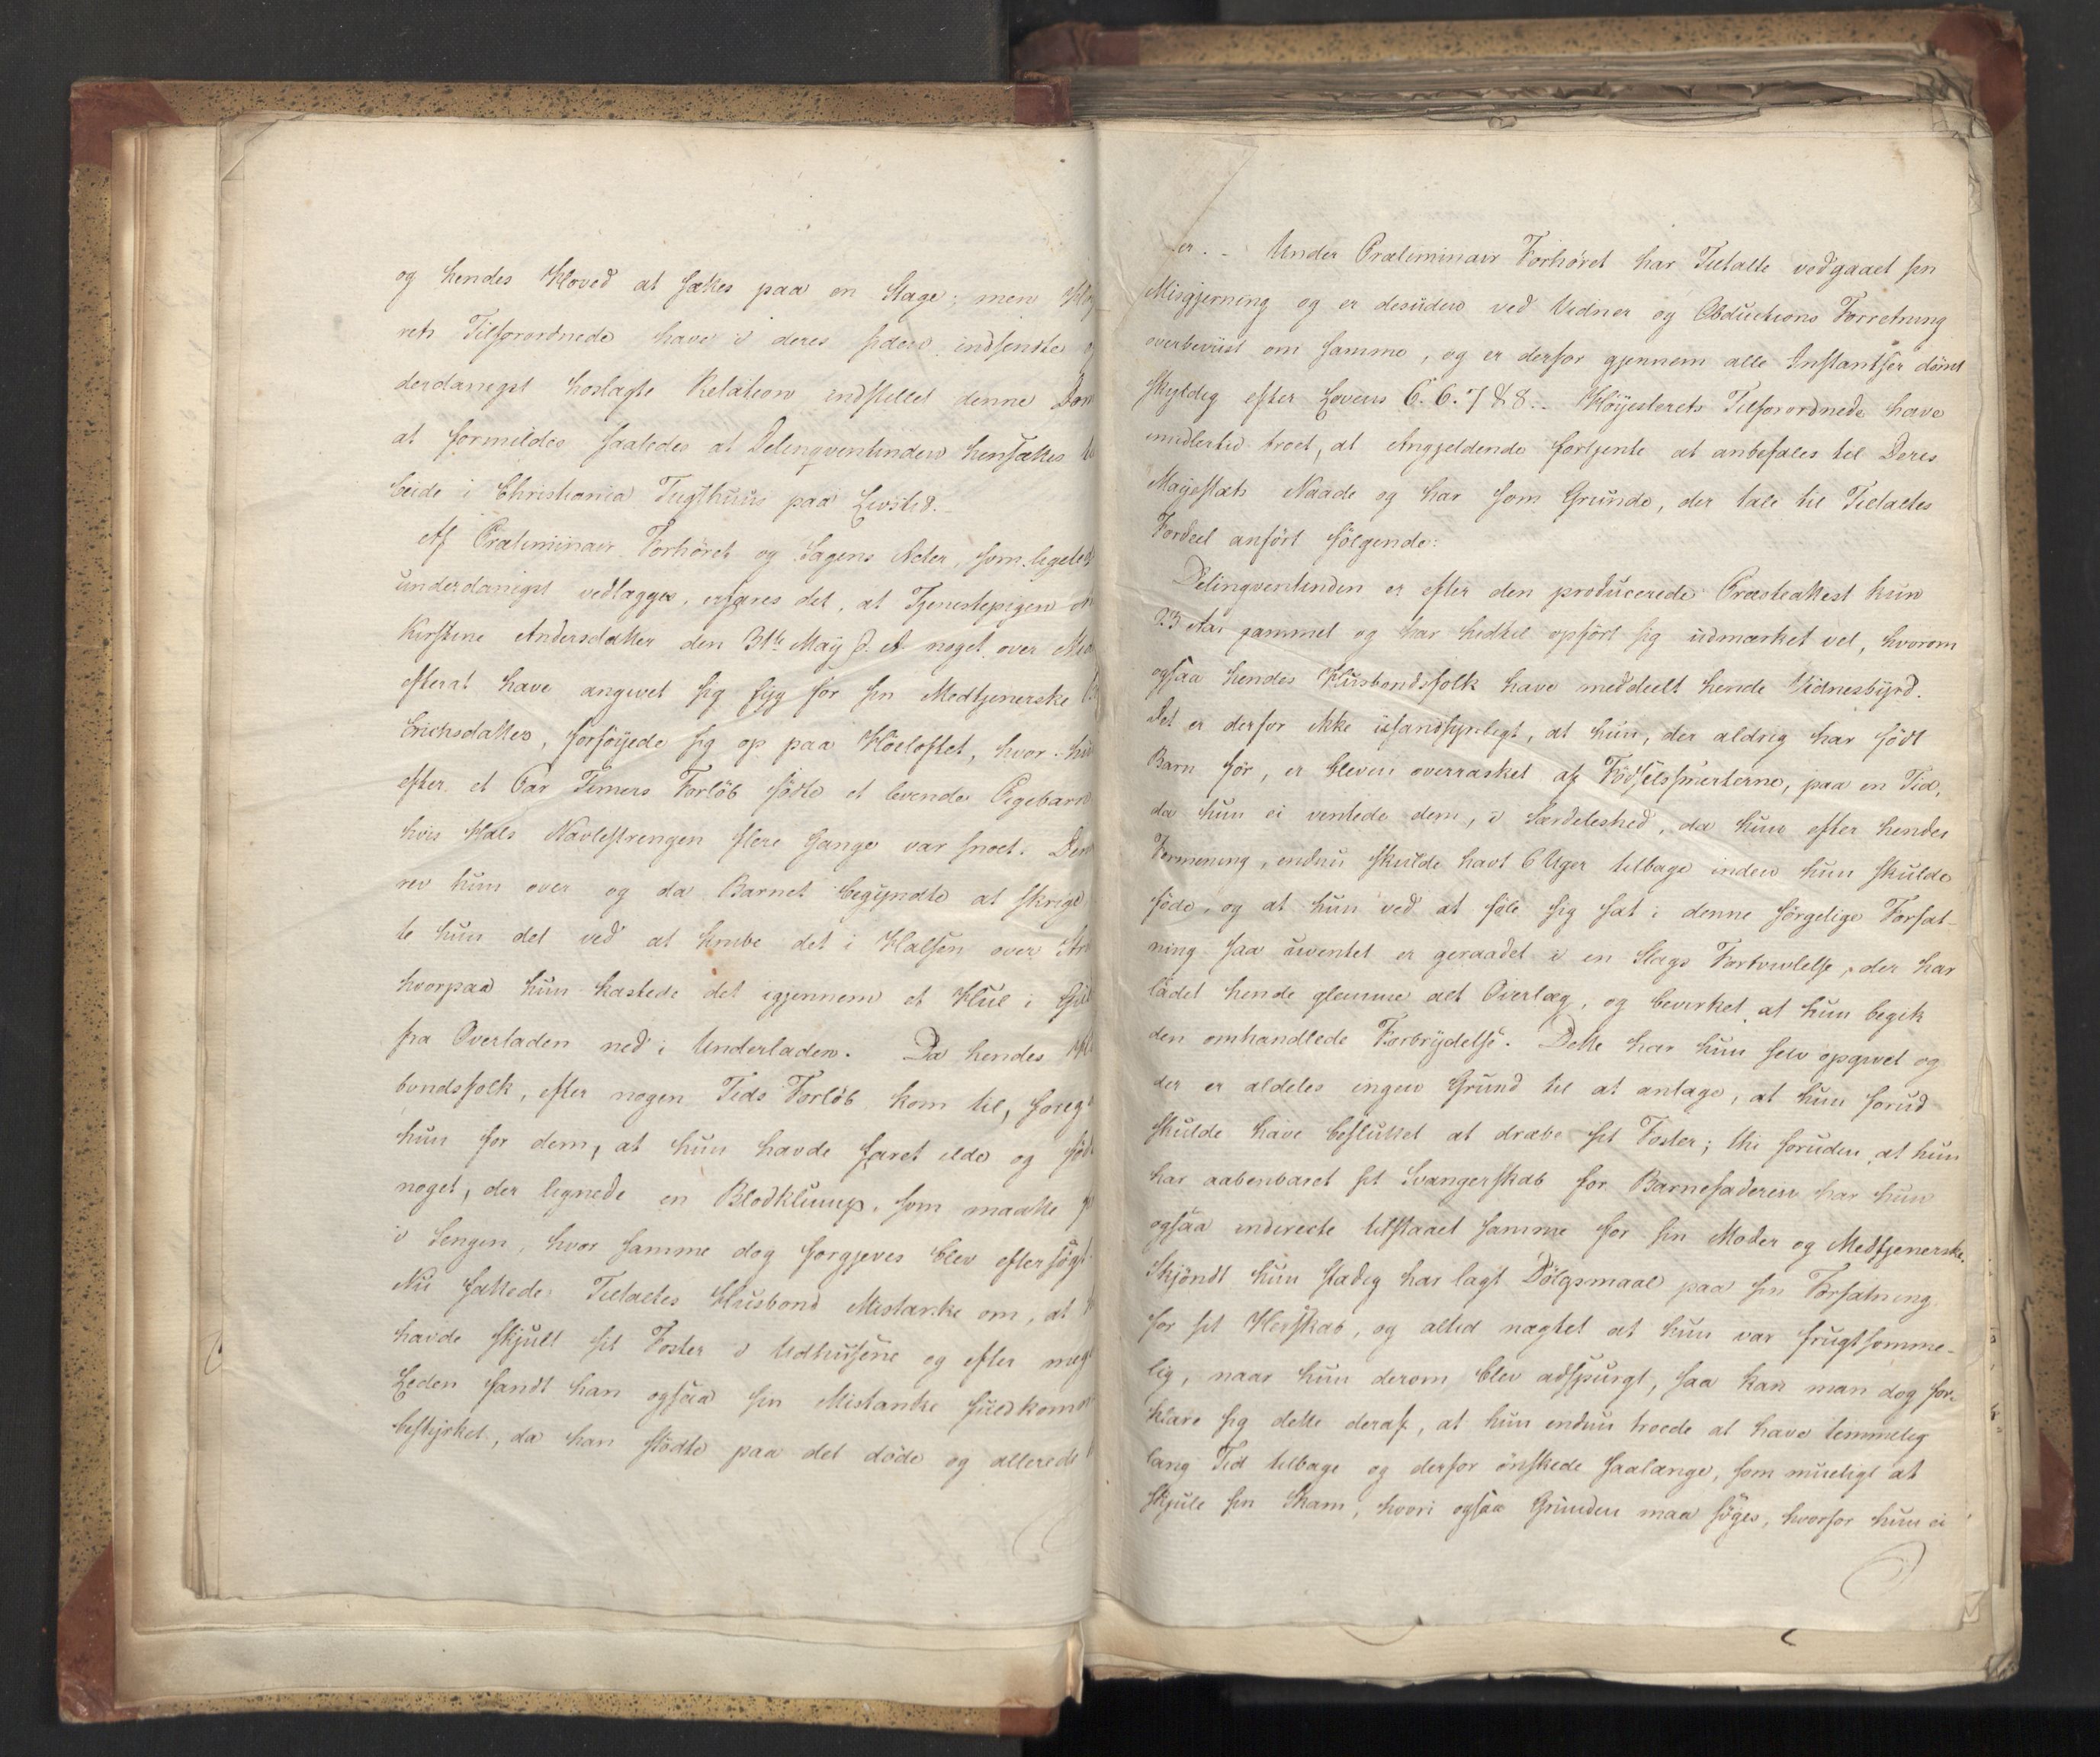 og hendes Hoved at sættes paa en Stage; men
rets Tilforordnede have i deres siden indsendte
derdanigst hoslagte Relation indstillet denne Dom
at formildes saaledes at Delinqventinden hensættes
beide i Christiania Tugthuus paa Livstid.
Af Præliminair Forhöret og Sagens Acter, som ligeledes
underdanigst vedlægges, erfares det, at Tjenestepigen
Kirstine Andersdatter den 31te Maÿ d. A. noget over
efterat have angivet sig syg for sin Medtjenerske
Erichsdatter, forföyede sig op paa Höeloftet, hvor hun
efter et Par Timers Forlöb födte et levende Pigebarn
hvis Hals Navlestrengen flere Gange var snoet. Den
rev hun over og da Barnet begyndte at skrige
te hun det ved at knibe det i Halsen over
hvorpaa hun kastede det igjennem et Hul i
fra Overladen ned i Underladen. Da hendes
bondsfolk, efter nogen Tids Forlöb kom til, foregav
hun for dem, at hun havde faret ilde og födt
noget, der lignede en Blodklump, som maatte
i Sengen, hvor samme dog forgjeves blev eftersögt.
Nu fattede Tiltaltes Husbond Mistanke om, at
havde skjult sit Foster i Udhusene og efter megen
Leden fandt han ogsaa sin Mistanke fuldkommen
bestyrket, da han stödte paa det döde og allerede
er. - Under Præliminair Forhöret har Tiltalte vedgaaet sin
Misgjerning og er desuden ved Vidner og Obductions Forretning
overbeviist om samme, og er derfor gjennem alle Instantser dömt
skyldig efter Lovens 6. 6. 7 & 8. - Höyesterets Tilforordnede have
imidlertid troet, at Angjeldende fortjente at anbefales til Deres
Majestæts Naade og har som Grunde, der tale til Tiltaltes
Fordeel anfört fölgende:
Delinqventinden er efter den producerede Præsteattest kun
23 Aar gammel og har hidtil opfört sig udmærket vel, hvorom
ogsaa hendes Husbondsfolk have meddeelt hende Vidnesbÿrd.
Det er derfor ikke usandsynligt, at hun, der aldrig har födt
Barn för, er bleven overrasket af Födselssmerterne, paa en Tid,
da hun ei ventede dem, i Særdeleshed, da hun efter hendes
Formening, endnu skulde havt 6 Uger tilbage inden hun skulde
föde, og at hun ved at föle sig sat i denne sörgelige Forfat-
ning saa uventet er geraadet i en Slags Fortvivlelse, der har
ladet hende glemme alt Overlæg, og bevirket at hun begik
den omhandlede Forbrÿdelse. Dette har hun selv opgivet og
der er aldeles ingen Grund til at antage, at hun forud
skulde have besluttet at dræbe sit Foster; thi foruden at hun
har aabenbaret sit Svangerskab for Barnefaderen har hun
ogsaa indirecte tilstaaet samme for sin Moder og Medtjenerske.
Skjöndt hun stadig har lagt Dölgsmaal paa sin Forfatning
for sit Herskab, og altid nægtet at hun var frugtsomme-
lig, naar hun derom blev adspurgt, saa kan man dog for-
klare sig dette deraf, at hun endnu troede at have temmelig
lang Tid tilbage og derfor önskede saalænge, som mueligt at
skjule sin Skam, hvori ogsaa Grunden maa söges, hvorfor hun ei